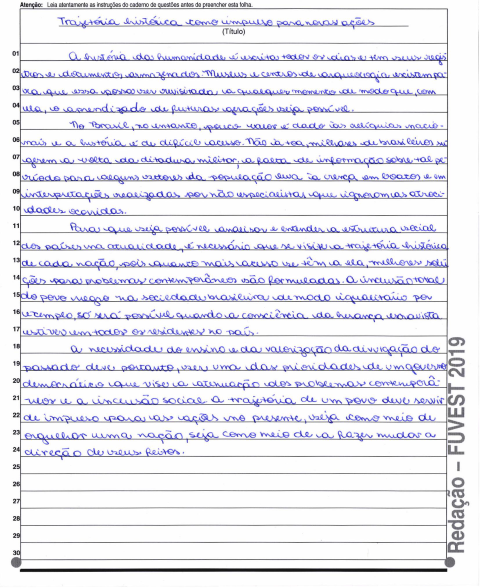 Atenção: Leia atentamente as instruções do caderno de questões antes de preencher esta folha.
Trajetória histórica como impulso para novas ações
(Título)
01 A história da humanidade é escrita todos os dias e tem seus regis
02 tros e documentos armazenados. Museus e centros de arqueologia existem pa
03 ra que essa possa ser revisitada a qualquer momento de modo que, com
04 ela, o aprendizado de futuras gerações seja possível.
05 No Brasil, no entanto, pouco valor é dado às relíquias nacio-
06 nais e a história é de difícil acesso. Não à toa, milhares de brasileiros su
07 gerem a volta da ditadura militar, a falta de informação sobre tal pe
08 ríodo para alguns setores da população leva à crença em boatos e em
09 interpretações realizadas por não especialistas que ignoram as atroci-
10 dades ocorridas.
11 Para que seja possível analisar e entender a estrutura social
12 dos países na atualidade, é necessário que se visite a trajetória histórica
13 de cada nação, pois quanto mais acesso se têm a ela, melhores solu
14 ções para problemas contemporâneos são formuladas. A inclusão total
15 do povo negro na sociedade brasileira de modo igualitário por
16 exemplo, só será possível quando a consciência da herança escravista
17 estiver em todos os residentes no país.
18 A necessidade do ensino e da valorização da divulgação do
19 passado deve portanto, ser uma das prioridades de um governo
20 democrático que visa a atenuação dos problemas contemporâ
21 neos e a inclusão social. A trajetória de um povo deve servir
22 de impulso para as ações no presente, seja como meio de
23 orgulhar uma nação, seja como meio de a fazer mudar a
24 direção de seus feitos.
25
26
27
28
29
30
Redação – FUVEST 2019